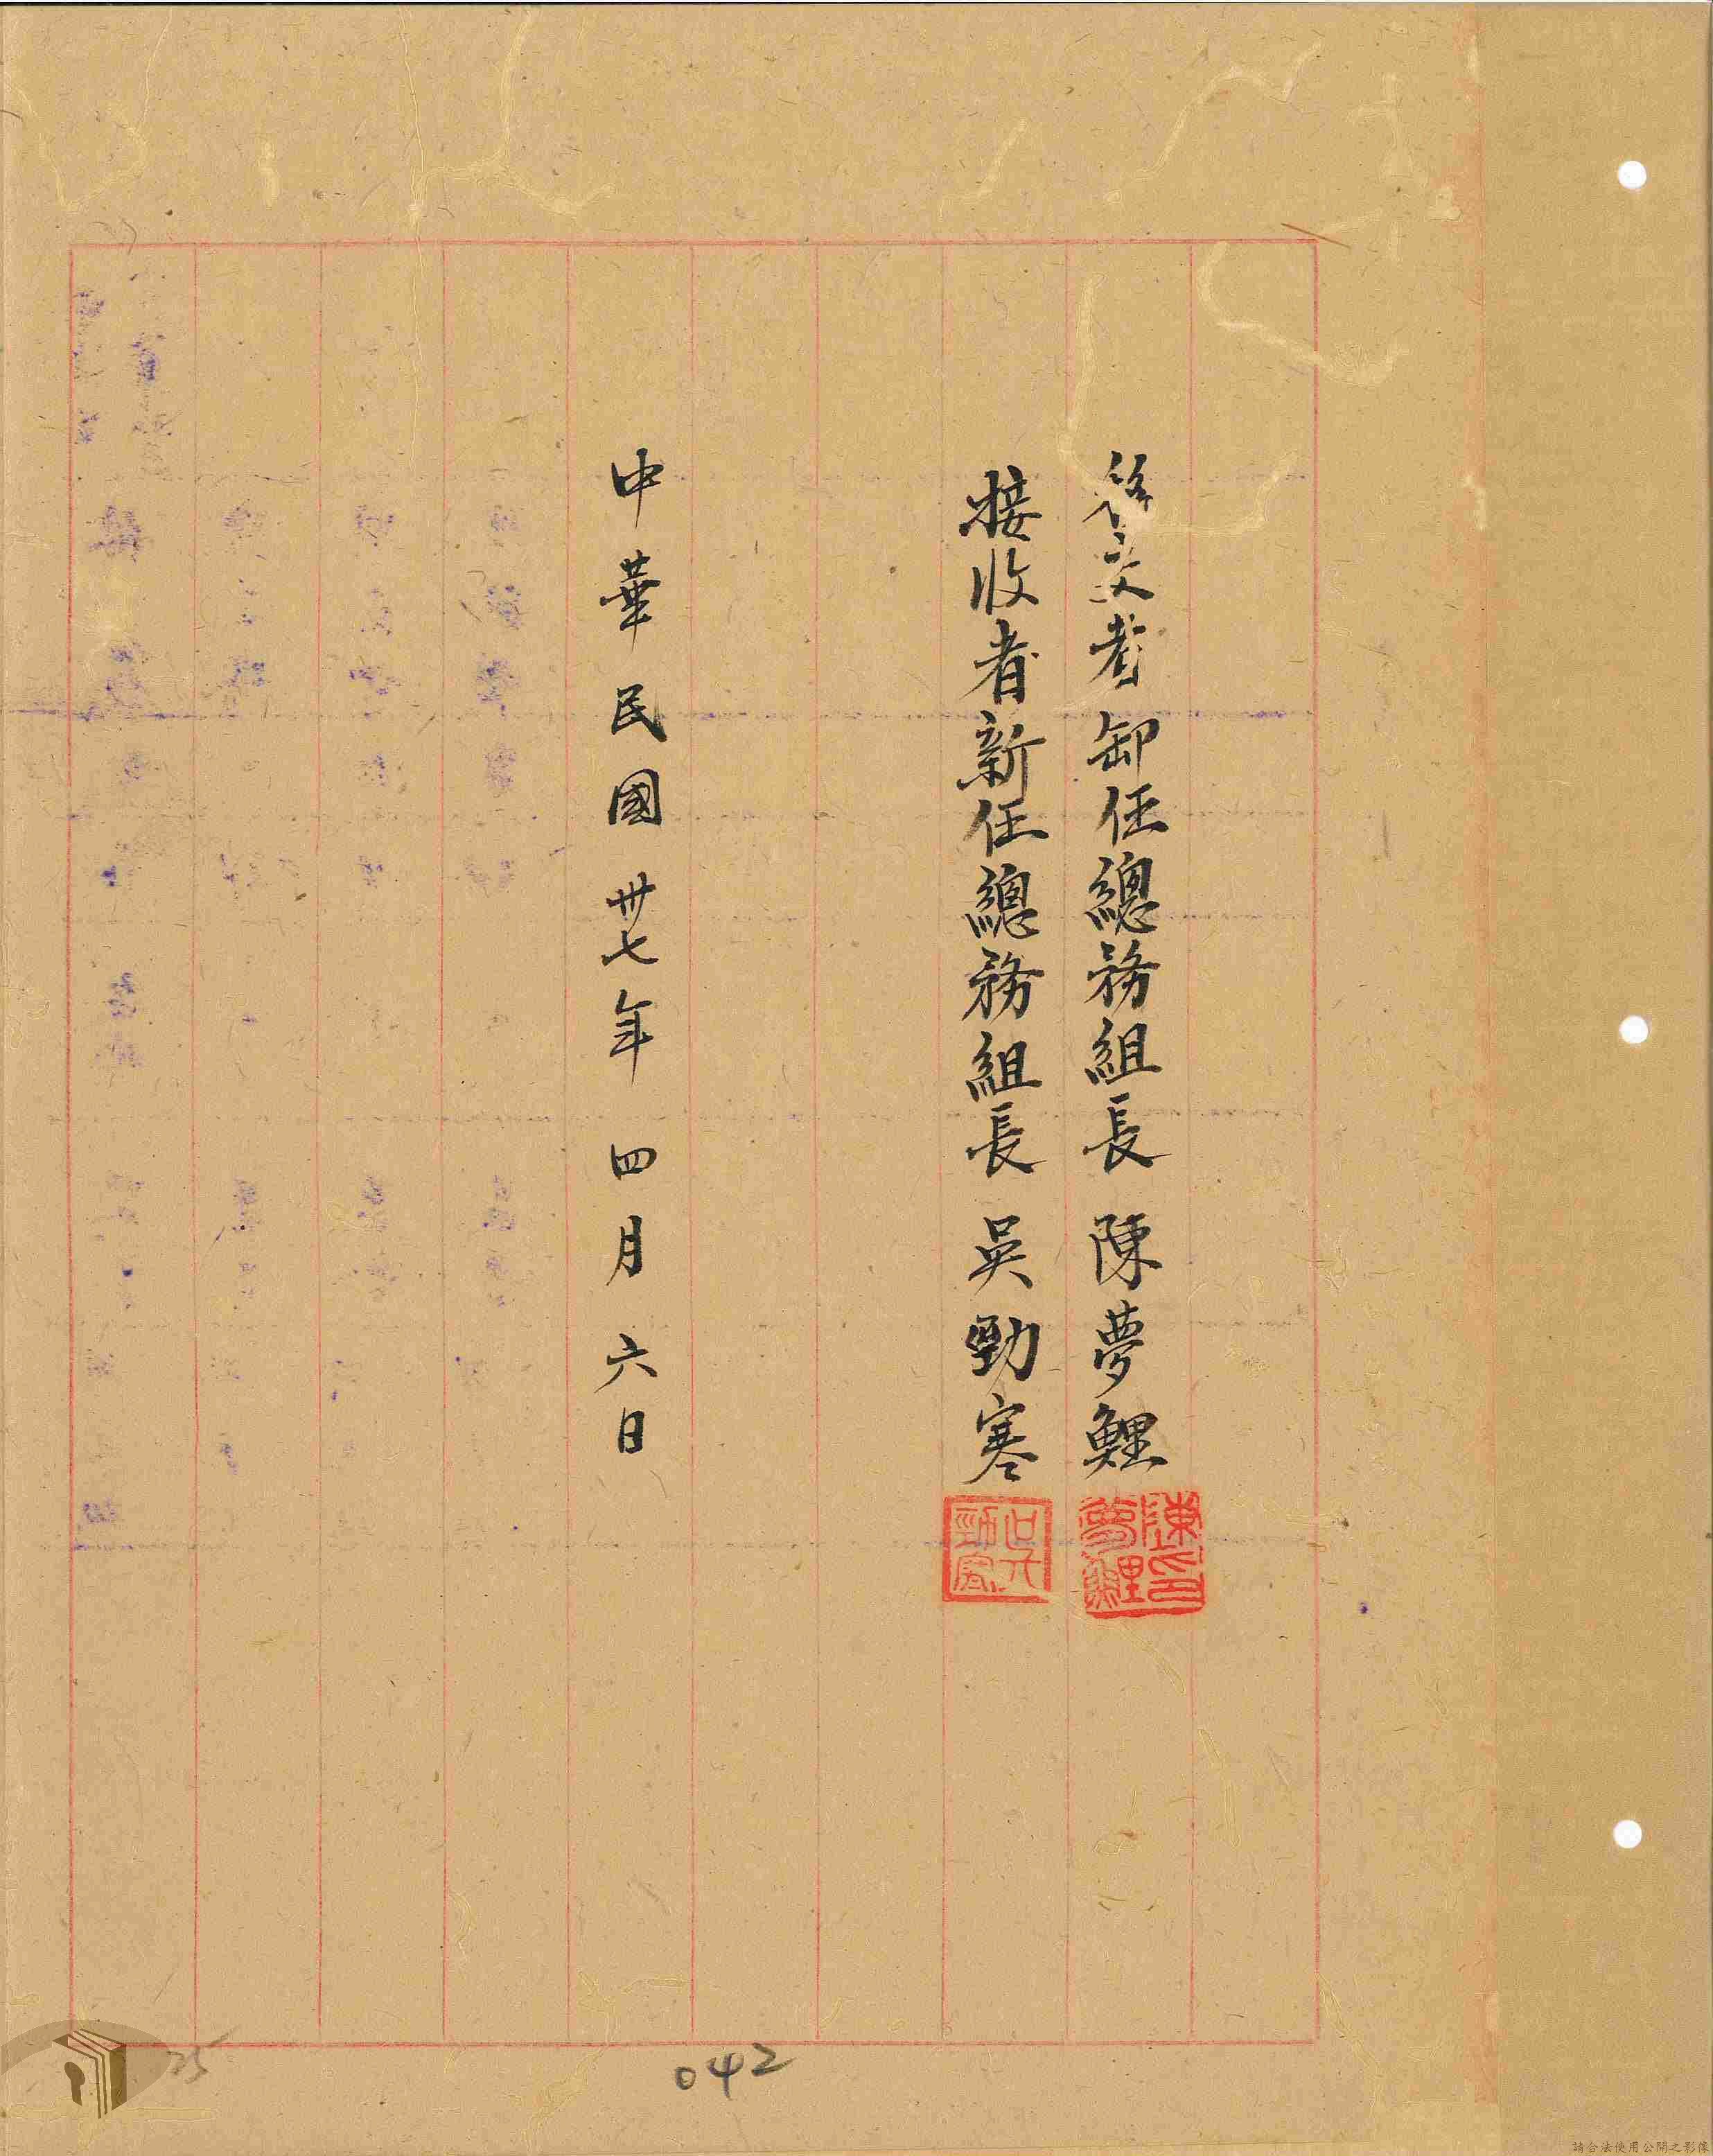 移交者 卸任總務組長 陳夢鯉
陳印夢鯉
接收者新任總務組長 吳勁寒
吳勁寒
中華民國卅七年 四月六日
042
25
請合法使用公開之影像